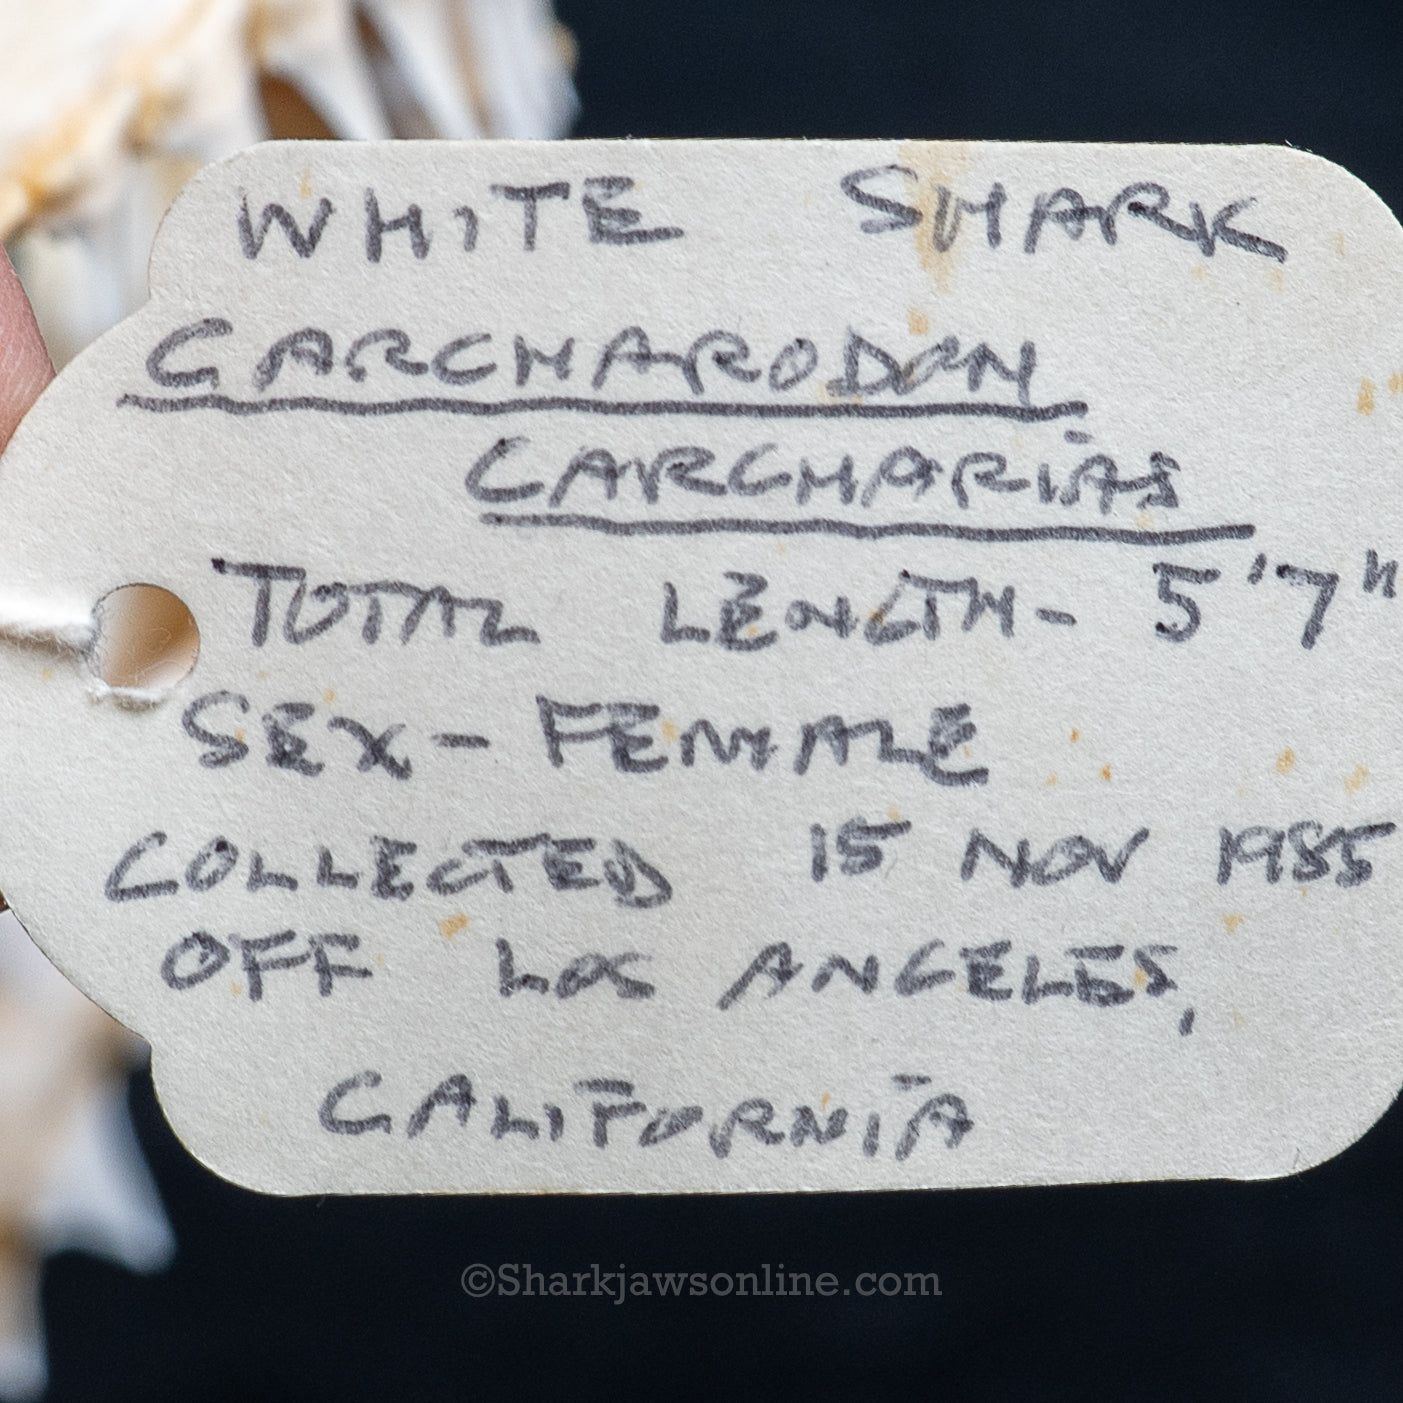 WHITE SHARK
CARCHARODON
CARCHARIAS
TOTAL LENGTH- 5'7"
SEX- FEMALE
COLLECTED 15 NOV 1985
OFF LOS ANGELES,
CALIFORNIA
©Sharkjawsonline.com